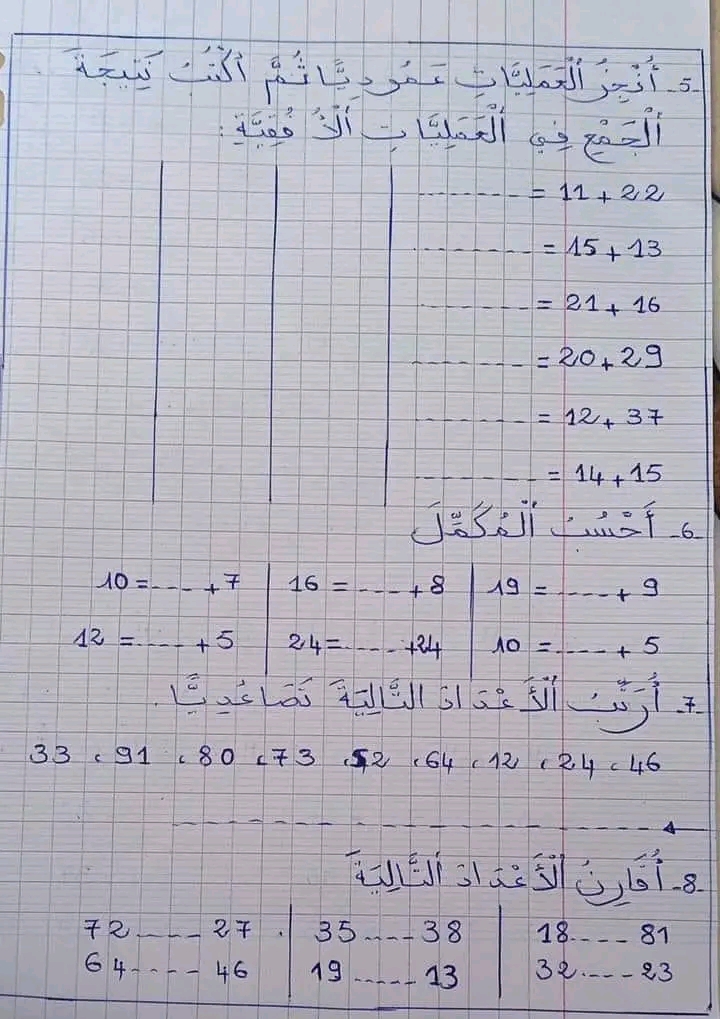 5- أُنْجِزُ ٱلْعَمَلِيَّاتِ عَمُودِيًّا ثُمَّ أَكْتُبُ نَتِيجَةَ
ٱلْجَمْعِ فِي ٱلْعَمَلِيَّاتِ ٱلْأُفُقِيَّةِ :
22 + 11 = ----------
13 + 15 = ----------
16 + 21 = ----------
29 + 20 = ----------
37 + 12 = ----------
15 + 14 = ----------
6- أَحْسُبُ ٱلْمُكَمِّلَ
9 + ---- = 19 | 8 + ---- = 16 | 7 + ---- = 10
5 + ---- = 10 | 24 + ---- = 24 | 5 + ---- = 12
7- أُرَتِّبُ ٱلْأَعْدَادَ التَّالِيَةَ تَصَاعُدِيًّا .
46 ، 24 ، 12 ، 64 ، 52 ، 73 ، 80 ، 91 ، 33
8- أُقَارِنُ ٱلْأَعْدَادَ ٱلتَّالِيَةَ
81 ---- 18 | 38 ---- 35 | 27 ---- 72
23 ---- 32 | 13 ---- 19 | 46 ---- 64